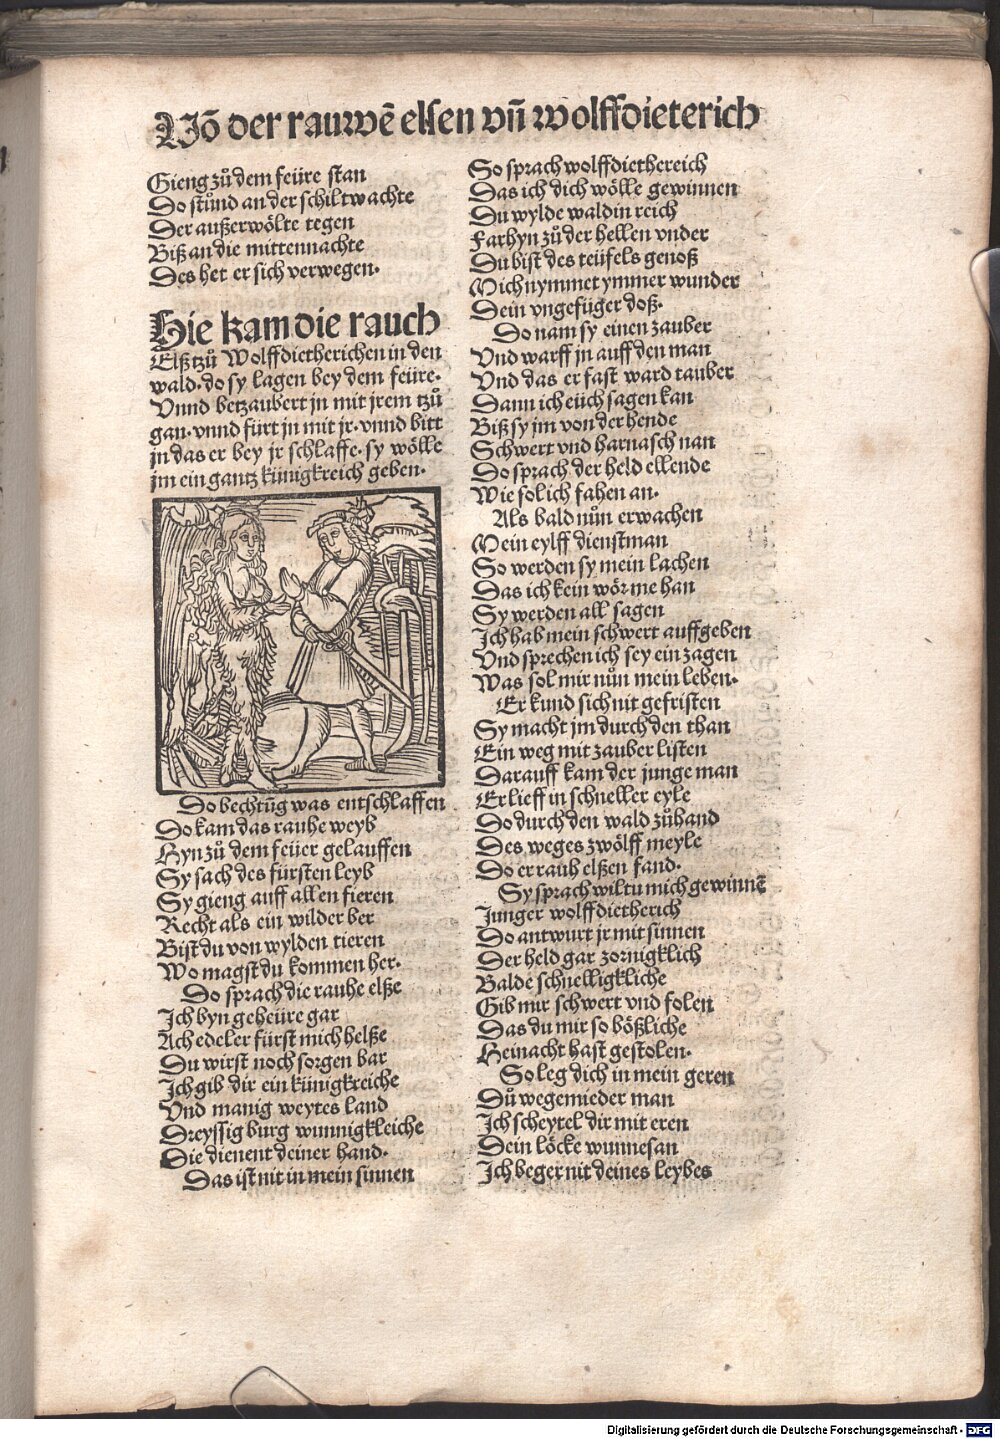 Võ der rauwē elsen vñ wolffdieterich
Gieng zů dem feüre stan
Do stůnd an der schiltwachte
Der außerwölte tegen
Biß an die mittennachte
Des het er sich verwegen.
Hie kam die rauch
Elß tzů Wolffdietherichen in den
wald. do sy lagen bey dem feüre.
Vnnd betzaubert jn mit jrem tzů
gan. vnnd fürt jn mit jr. vnnd bitt
jn das er bey jr schlaffe. sy wölle
jm ein gantz künigkreich geben.
Do bechtũg was entschlaffen
Do kam das rauhe weyb
Hyn zů dem feüer gelauffen
Sy sach des fürsten leyb
Sy gieng auff allen fieren
Recht als ein wilder ber
Bist du von wylden tieren
Wo magst du kommen her.
Do sprach die rauhe elße
Ich byn geheüre gar
Ach edeler fürst mich helße
Du wirst noch sorgen bar
Ich gib dir ein künigkreiche
Vnd manig weytes land
Dreyssig burg wunnigkleiche
Die dienent deiner hand.
Das ist nit in mein sinnen
So sprach wolffdiethereich
Das ich dich wölle gewinnen
Du wylde waldin reich
Farhyn zů der hellen vnder
Du bist des teüfels genoß
Mich nymmet ymmer wunder
Dein vngefüger doß.
Do nam sy einen zauber
Vnd warff jn auff den man
Vnd das er fast ward tauber
Dann ich eüch sagen kan
Biß sy jm von der hende
Schwert vnd harnasch nan
Do sprach der held ellende
Wie sol ich fahen an.
Als bald nůn erwachen
Mein eylff dienstman
So werden sy mein lachen
Das ich kein wörme han
Sy werden all sagen
Ich hab mein schwert auffgeben
Vnd sprechen ich sey ein zagen
Was sol mir nůn mein leben.
Er kund sich nit gefristen
Sy macht jm durch den than
Ein weg mit zauber listen
Darauff kam der junge man
Er lieff in schneller eyle
Do durch den wald zůhand
Des weges zwölff meyle
Do er rauh elßen fand.
Sy sprach wiltu mich gewinnē
Junger wolffdietherich
Do antwurt jr mit sinnen
Der held gar zornigklich
Balde schnelligkliche
Gib mir schwert vnd folen
Das du mir so bößliche
Heinacht hast gestolen.
So leg dich in mein geren
Dů wegemieder man
Ich scheytel dir mit eren
Dein löcke wunnesan
Ich beger nit deines leybes
Digitalisierung gefördert durch die Deutsche Forschungsgemeinschaft - DFG